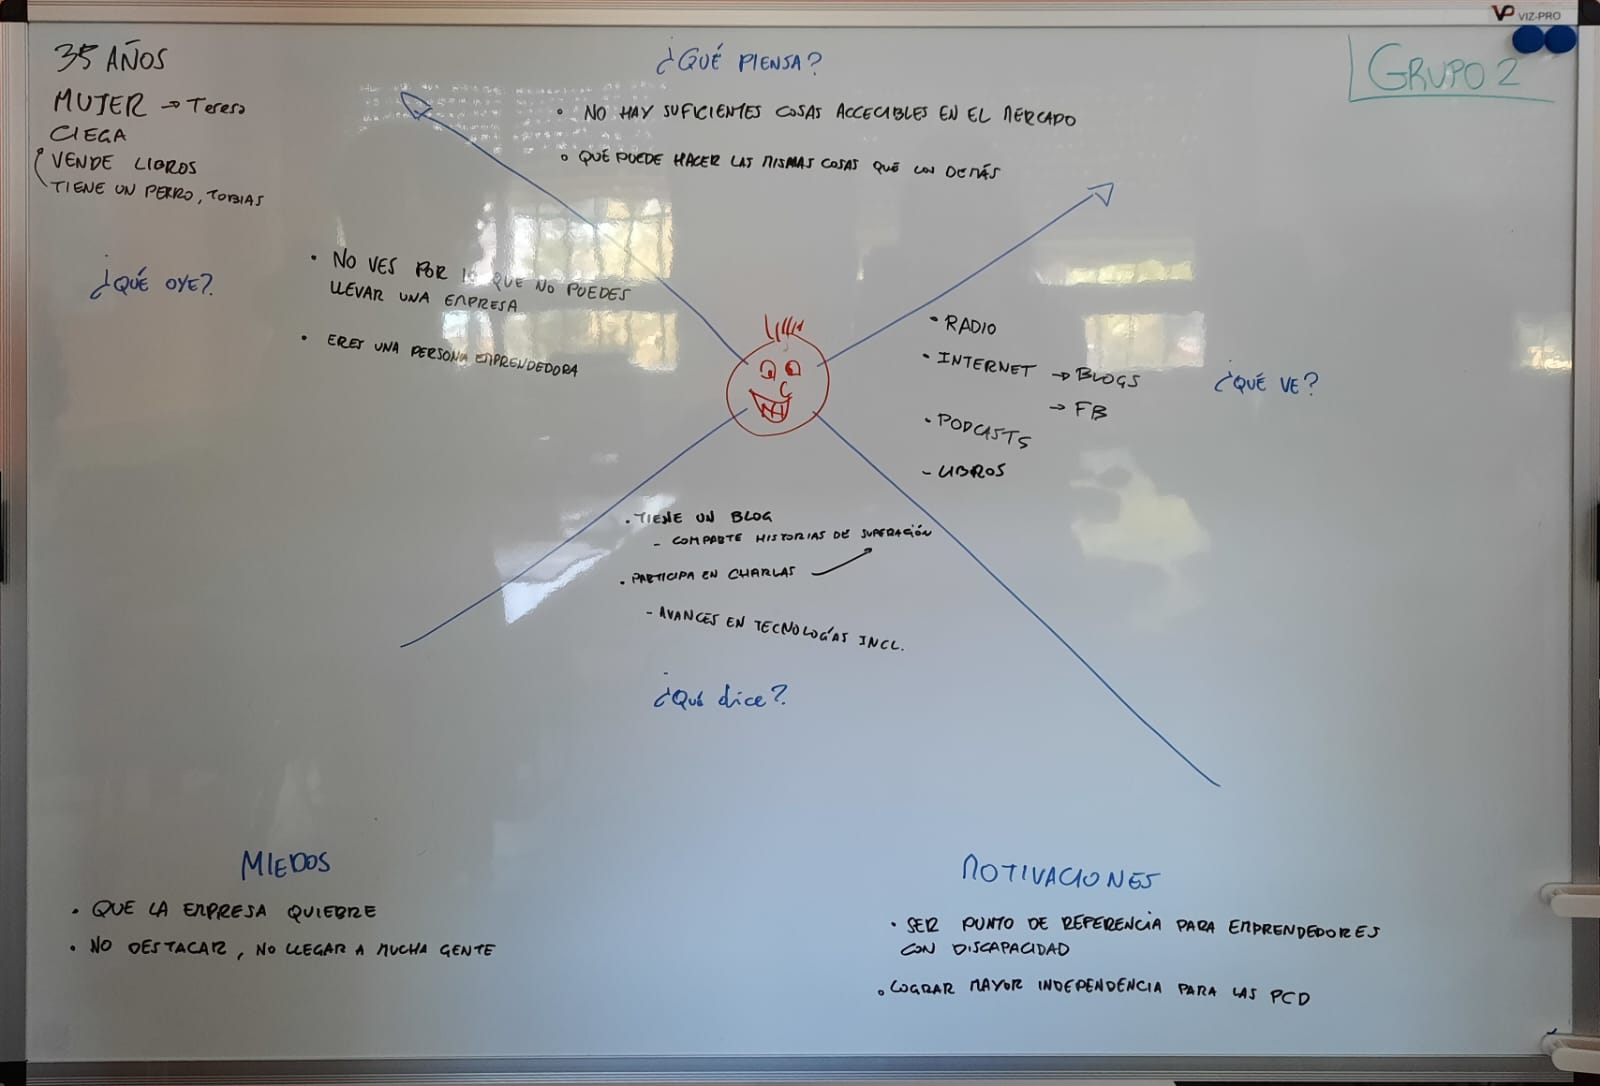 VP VIZ-PRO
GRUPO 2
35 AÑOS
MUJER → Teresa
CIEGA
VENDE LIBROS
TIENE UN PERRO, TOBIAS
¿QUÉ PIENSA?
• NO HAY SUFICIENTES COSAS ACCECIBLES EN EL MERCADO
• QUÉ PUEDE HACER LAS MISMAS COSAS QUE LOS DEMÁS
¿QUÉ OYE?
• NO VES POR LO QUE NO PUEDES
LLEVAR UNA EMPRESA
• ERES UNA PERSONA EMPRENDEDORA
• RADIO
• INTERNET → BLOGS
→ FB
• PODCASTS
- LIBROS
¿QUÉ VE?
• TIENE UN BLOG
- COMPARTE HISTORIAS DE SUPERACIÓN
• PARTICIPA EN CHARLAS
- AVANCES EN TECNOLOGÍAS INCL.
¿Qué dice?
MIEDOS
• QUE LA EMPRESA QUIEBRE
• NO DESTACAR, NO LLEGAR A MUCHA GENTE
MOTIVACIONES
• SER PUNTO DE REFERENCIA PARA EMPRENDEDORES
CON DISCAPACIDAD
• LOGRAR MAYOR INDEPENDENCIA PARA LAS PCD